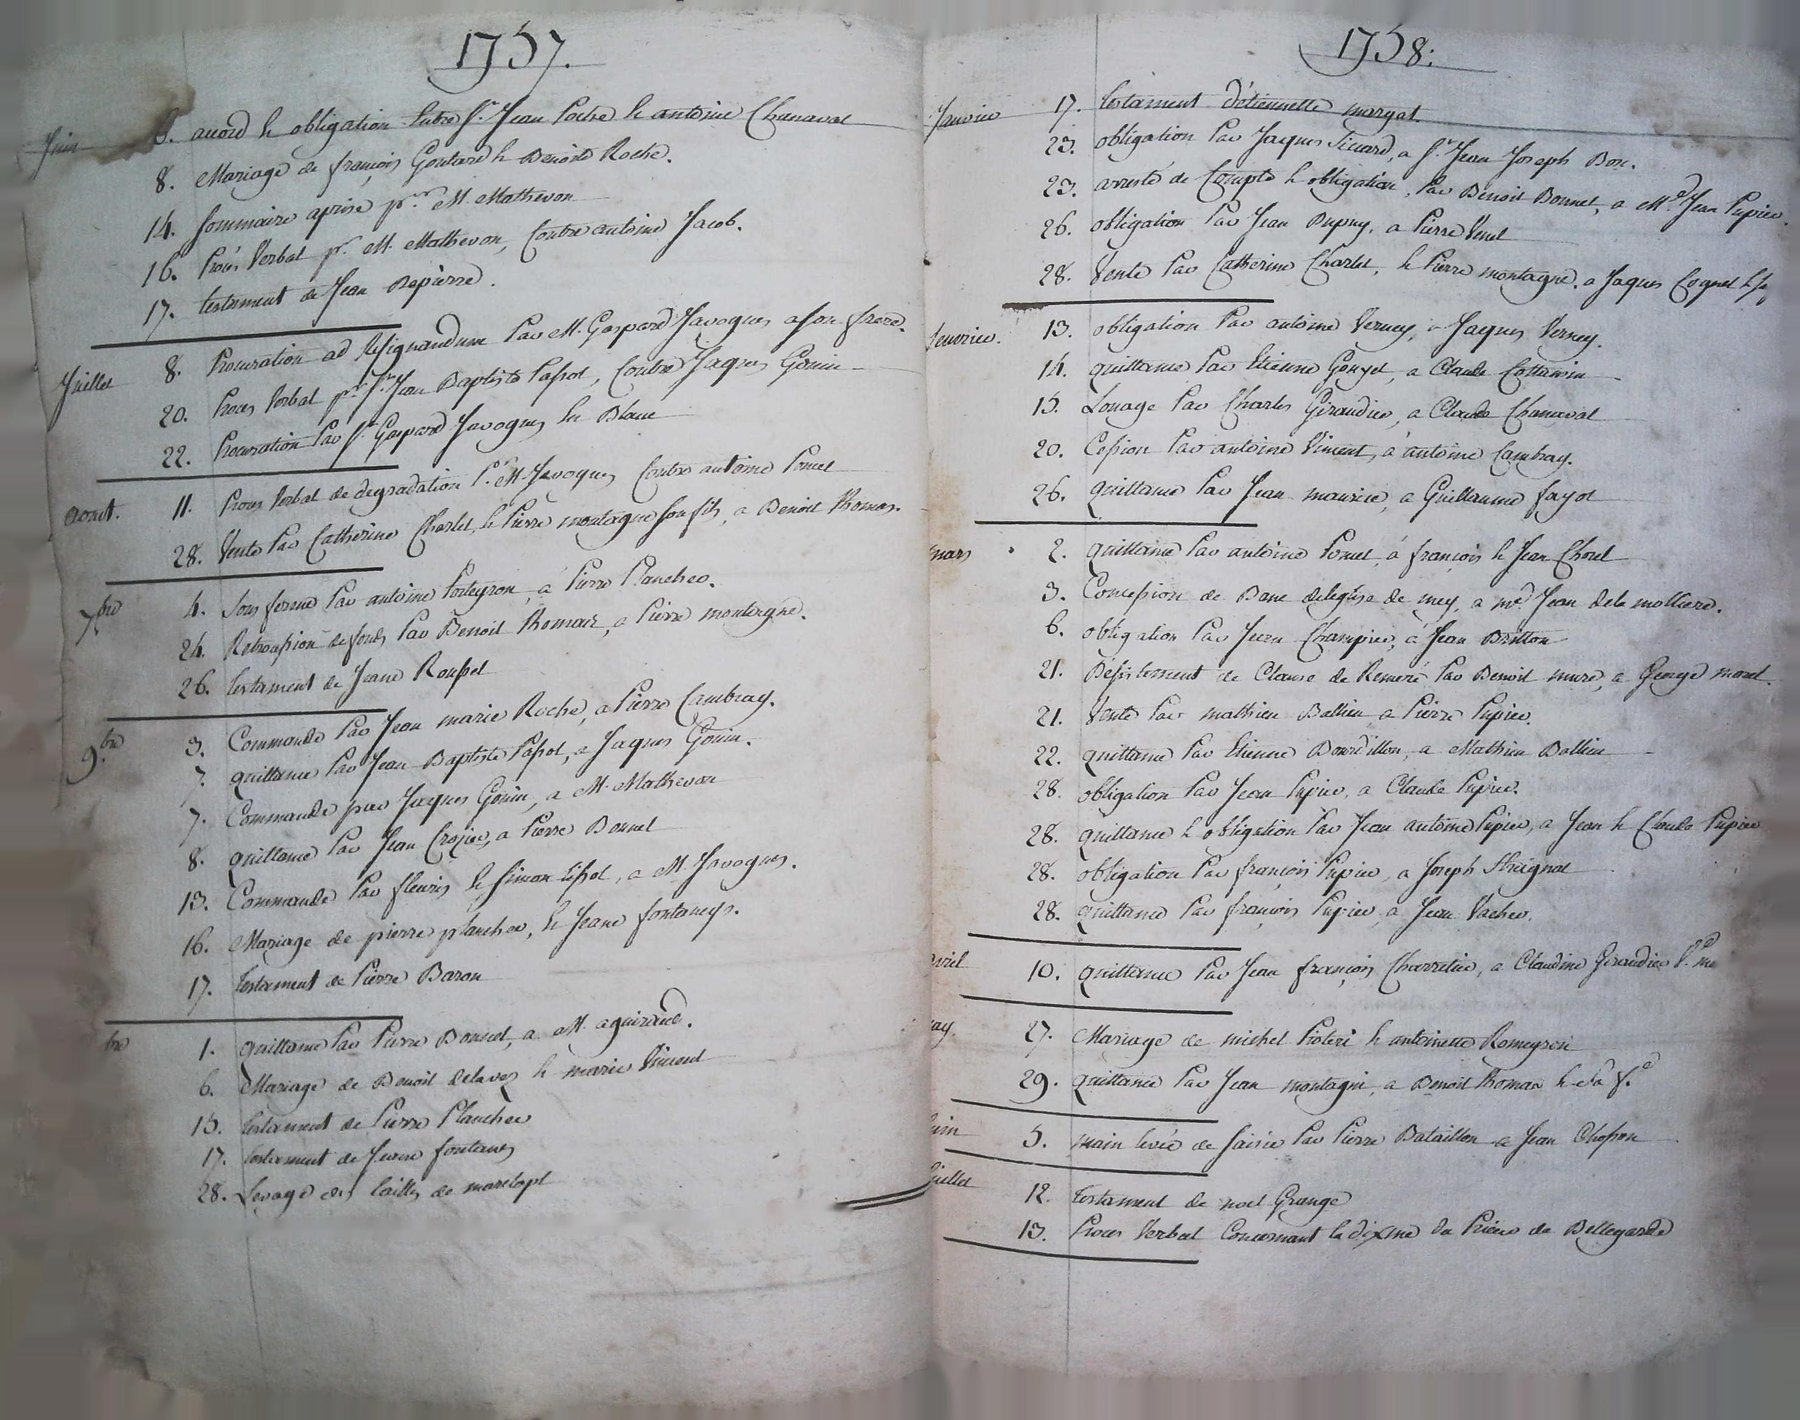 1757.
Juin 8. accord & obligation Entre Sr. Jean Poche & antoine Chanavat
8. Mariage de françois Goutard & Benoite Roche.
14. Sommaire aprise pr. M. Mathevon
16. Procés Verbal pr. M. Mathevon, Contre antoine Jacob.
17. testament de Jean Depierre.
Juillet 8. Procuration ad Resignandum Par M. Gaspard Javogues a son frere.
20. Proces Verbal pr. Sr. Jean Baptiste Passot, Contre Jaques Gonin
22. Procuration Par Sr. Gaspard Javogues En Blanc
aoust. 11. Proces Verbal de degradation Pr. M. Javogues Contre antoine Poncet
28. Vente Par Catherine Charlet, & Pierre montagne son fils, a Benoit Thomas.
7bre 4. Sous ferme Par antoine Porteyron, a Pierre Plancher.
24. Retrocession de fonds Par Benoit Thomas, a Pierre montagne.
26. testament de Jeane Rousset
9bre 3. Commande Par Jean marie Roche, a Pierre Cambray.
7. quittance Par Jean Baptiste Passot, a Jaques Gonin.
7. Commande par Jacques Gonin, a M. Mathevon
8. quittance Par Jean Crozier, a Pierre Bonnet
13. Commande Par fleurie & Simon tissot, a M. Javogues.
16. Mariage de pierre plancher, & Jeane fontaneys.
17. testament de Pierre Baron
bre 1. quittance Par Pierre Bonnet, a M. aguiraud.
6. Mariage de Benoit delaves & marie Vincent
15. testament de Pierre Plancher
17. testament de Jeane fontanes
28. Levage des tailles de marclopt
1758:
Janvier 17. testament d'étiennette margot.
23. obligation Par Jacques Sicard, a Sr. Jean Joseph Bon.
23. arresté de Compte & obligation, Par Benoit Bonnet, a Md. Jean Pupier.
26. obligation Par Jean Dupuy, a Pierre Venet
28. Vente Par Catherine Charlet, & Pierre montagne, a Jaques Cognet
fevrier. 13. obligation Par antoine Verney, a Jaques Verney.
14. quittance Par Etienne Gonyet, a Claude Cottancin
15. Louage Par Charles Giraudier, a Claude Chanavat
20. Cession Par antoine Viment, a antoine Cambray.
26. quittance Par Jean maurice, a Guillaume fayot
mars 2. quittance Par antoine Poncet, a françois & Jean Choret
3. Concession de Banc de leglise de mey, a md. Jean dela molliere.
6. obligation Par Jean Champier, a Jean Bretton
21. Désistement de Clause de Remeré Par Benoit mure, a George moret.
21. Vente Par mathieu Ballieu a Pierre Pupier.
22. quittance Par Etienne Bourdillon, a Mathieu Ballieu
28. obligation Par Jean Pupier, a Claude Pupier.
28. quittance & obligation Par Jean antoine Pupier, a Jean & Claude Pupier
28. obligation Par françois Pupier, a Joseph
28. quittance Par françois Pupier, a Jean Vacher.
avril 10. quittance Par Jean françois Charretier, a Claudine Giraudier
may. 27. Mariage de michel Proteri & antoinette Romeyron
29. quittance Par Jean montagne, a Benoit Thomas & sa fe
Juin 5. main levée de saisie Par Pierre Bataillon a Jean Chosson
Juillet 12. testament de noel Grange
13. Proces Verbal Concernant la dixme du Prieur de Bellegarde